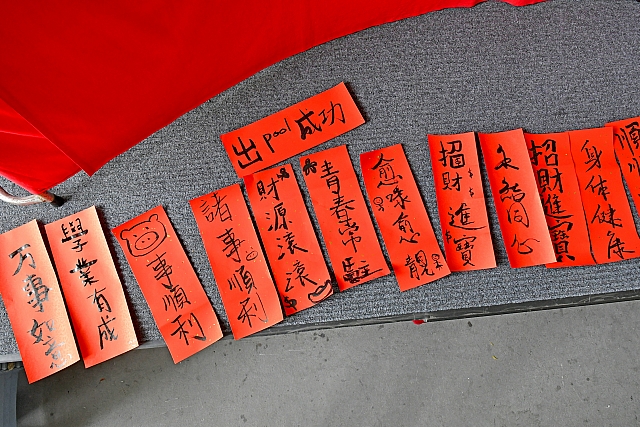 出pool成功
万事如意
學業有成
事順利
諸事順利
財源滾滾
青春常駐
愈嚟愈靚
招財進寶
永結同心
招財進寶
身体健康
順